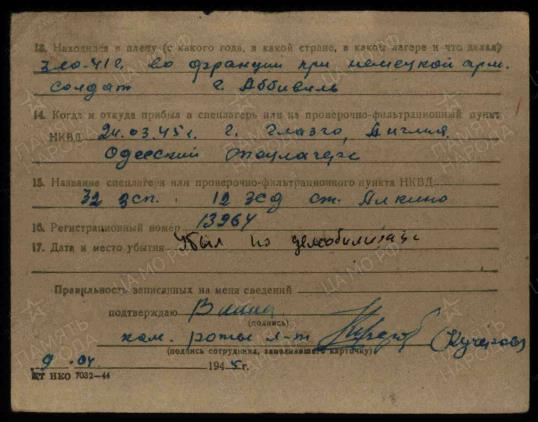 13. Находился в плену (с какого года, в какой стране, в каком лагере и что делал)
во франции при немецкой арм.
солдат г. Аббивиль
14. Когда и откуда прибыл в спецлагерь или на проверочно-фильтрационный пункт
НКВД 24.03.45 г. г. Глазго, Англия.
Одесский
15. Название спецлагеря или проверочно-фильтрационного пункта НКВД
32 зсп. 12 зсд ст. Алкино
16. Регистрационный номер 13964
17. Дата и место убытия Убыл по
Правильность записанных на меня сведений
подтверждаю
(подпись)
ком. роты л-т (Кучеров)
(подпись сотрудника, заполнявшего карточку)
9. 04 1945 г.
КТ НКО 7032—44